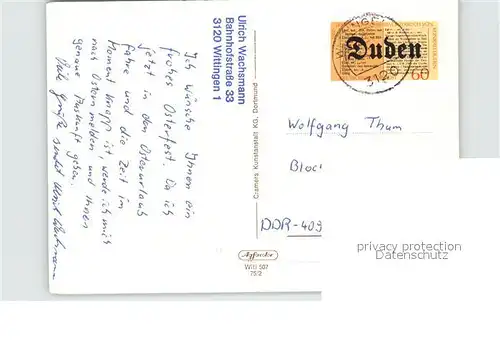 Ich wünsche Ihnen ein
frohes Osterfest. Da ich
jetzt in den Osterurlaub
fahre und die Zeit im
Moment knapp ist, werde ich mich
nach Ostern melden und Ihnen
genaue Auskunft geben.
Viele Grüße sendet Ulrich Wachsmann
Ulrich Wachsmann
Bahnhofstraße 33
3120 Wittingen 1
Cramers Kunstanstalt KG, Dortmund
Duden
60
3120
Wolfgang Thum
Bloc
DDR-403
WiB 507
75/2
privacy protection
Datenschutz